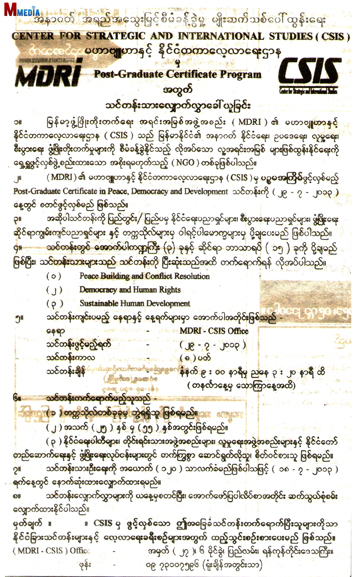 MMEDIA
အနာဂတ် အရည်အသွေးမြင့်စီမံခန့်ခွဲမှု မျိုးဆက်သစ်ပေါ်ထွန်းရေး
CENTER FOR STRATEGIC AND INTERNATIONAL STUDIES ( CSIS )
မဟာဗျူဟာနှင့် နိုင်ငံတကာလေ့လာရေးဌာန
MDRI
၏
CSIS
Post-Graduate Certificate Program
အတွက်
သင်တန်းသားလျှောက်လွှာခေါ်ယူခြင်း
၁။ မြန်မာ့ဖွံ့ဖြိုးတိုးတက်ရေး အရင်းအမြစ်အဖွဲ့အစည်း ( MDRI ) ၏ မဟာဗျူဟာနှင့်
နိုင်ငံတကာလေ့လာရေးဌာန ( CSIS ) သည် မြန်မာနိုင်ငံ၏ အနာဂတ် နိုင်ငံရေး၊ ဥပဒေရေး၊ လူမှုရေး၊
စီးပွားရေး ဖွံ့ဖြိုးတိုးတက်မှုများကို စီမံခန့်ခွဲနိုင်သည့် လိုအပ်သော လူ့အရင်းအမြစ် များဖြစ်ထွန်းနိုင်ရေးကို
ရှေးရှု၍ဖွင့်လှစ်ဖွဲ့စည်းထားသော အစိုးရမဟုတ်သည့် ( NGO ) တစ်ခုဖြစ်ပါသည်။
၂။ (MDRI) ၏ မဟာဗျူဟာနှင့် နိုင်ငံတကာလေ့လာရေးဌာန ( CSIS ) မှ ပဉ္စမအကြိမ်ဖွင့်လှစ်မည့်
Post-Graduate Certificate in Peace, Democracy and Development သင်တန်းကို ( ၂၉ - ၇ - ၂၀၁၃ )
နေ့တွင် စတင်ဖွင့်လှစ်မည် ဖြစ်သည်။
၃။ အဆိုပါသင်တန်းကို ပြည်တွင်း/ ပြည်ပမှ နိုင်ငံရေးပညာရှင်များ၊ စီးပွားရေးပညာရှင်များ၊ ဖွံ့ဖြိုးရေး
ဆိုင်ရာကျွမ်းကျင်ပညာရှင်များ နှင့် တက္ကသိုလ်များမှ ပါရဂူပါမောက္ခများမှ ပို့ချပေးမည် ဖြစ်ပါသည်။
၄။ သင်တန်းတွင် အောက်ပါကဏ္ဍကြီး (၃) ခုနှင့် ဆိုင်ရာ ဘာသာရပ် ( ၁၅ ) ခုကို ပို့ချမည်
ဖြစ်ပြီး၊ သင်တန်းသားများသည် သင်တန်းကို ပြီးဆုံးသည်အထိ တက်ရောက်ရန် လိုအပ်ပါသည်။
( ၁ ) Peace Building and Conflict Resolution
( ၂ ) Democracy and Human Rights
( ၃ ) Sustainable Human Development
၅။ သင်တန်းကျင်းပမည့် နေရာနှင့် နေ့ရက်များမှာ အောက်ပါအတိုင်းဖြစ်သည်
နေရာ - MDRI - CSIS Office
သင်တန်းဖွင့်မည့်ရက် - ( ၂၉ - ၇ - ၂၀၁၃ )
သင်တန်းကာလ - ( ၈ ) ပတ်
သင်တန်းချိန် - နံနက် ၉ း ၀၀ နာရီမှ ညနေ ၃ း ၂၀ နာရီ ထိ
( တနင်္လာနေ့မှ သောကြာနေ့အထိ )
၆။ သင်တန်းတက်ရောက်မည့်သူသည် -
( ၁ ) တက္ကသိုလ်တစ်ခုခုမှ ဘွဲ့ရရှိသူ ဖြစ်ရမည်။
( ၂ ) အသက် ( ၂၅ ) နှစ် မှ ( ၅၅ ) နှစ်အတွင်းဖြစ်ရမည်။
( ၃ ) နိုင်ငံရေးပါတီများ၊ တိုင်းရင်းသားအဖွဲ့အစည်းများ၊ လူမှုရေးအဖွဲ့အစည်းများနှင့် နိုင်ငံတော်
တည်ဆောက်ရေးနှင့် ဖွံ့ဖြိုးရေးလုပ်ငန်းများတွင် တက်ကြွစွာ ဆောင်ရွက်လိုသူ၊ စိတ်ဝင်စားသူ ဖြစ်ရမည်။
၇။ သင်တန်းသားဦးရေကို အယောက် ( ၁၂၀ ) သာလက်ခံမည်ဖြစ်ပါသဖြင့် ( ၁၈ - ၇ - ၂၀၁၃ )
ရက်နေ့တွင် နောက်ဆုံးထားလျှောက်ထားရမည်။
၈။ သင်တန်းလျှောက်လွှာများကို ယနေ့မှစတင်ပြီး အောက်ဖော်ပြပါလိပ်စာအတိုင်း ဆက်သွယ်စုံစမ်း
လျှောက်ထားနိုင်ပါသည်။
မှတ်ချက် ။ ။ CSIS မှ ဖွင့်လှစ်သော ဤအခြေခံသင်တန်းတက်ရောက်ပြီးသူများကိုသာ
နိုင်ငံခြားသင်တန်းများနှင့် လေ့လာရေးခရီးစဉ်များအတွက် ထည့်သွင်းစဉ်းစားပေးမည် ဖြစ်သည်။
( MDRI - CSIS ) Office အမှတ် ( ၂၇ )၊ ပြည်လမ်း၊ ရန်ကုန်တိုင်းဒေသကြီး။
ဖုန်း - ၀၉ ၇၃၁၀၇၅၉၆ ( ရုံးချိန်အတွင်းသာ )